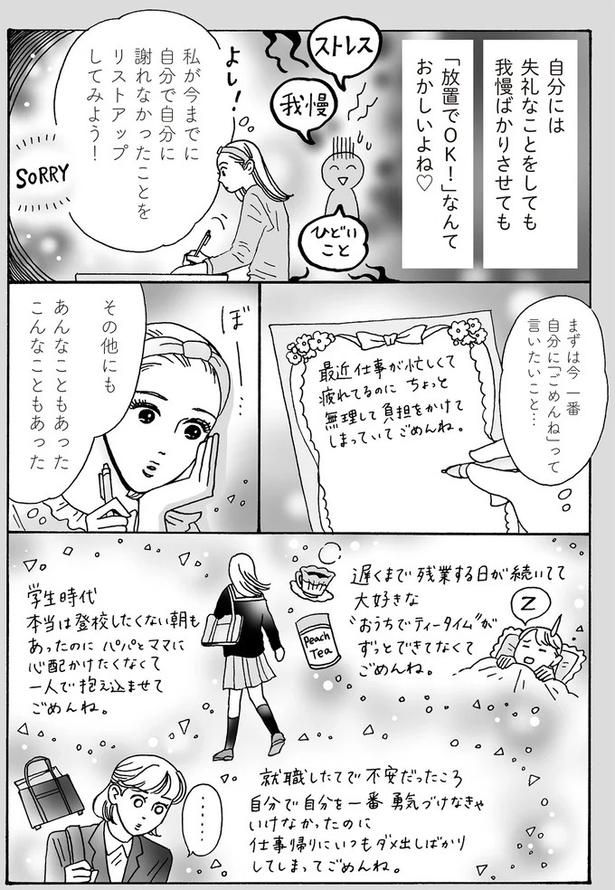 自分には
失礼なことをしても
我慢ばかりさせても
「放置でOK！」なんて
おかしいよね♡
ストレス
我慢
ひどい
こと
よし！
私が今までに
自分で自分に
謝れなかったことを
リストアップ
してみよう！
SORRY
まずは今 一番
自分に「ごめんね」って
言いたいこと…
最近仕事が忙しくて
疲れてるのに ちょっと
無理して負担をかけて
しまっていてごめんね。
ぼ……
その他にも
あんなこともあった
こんなこともあった
遅くまで残業する日が続いてて
大好きな
“おうちでティータイム”が
ずっとできてなくて
ごめんね。
Peach
Tea
Z
学生時代
本当は登校したくない朝も
あったのに パパとママに
心配かけたくなくて
一人で抱え込ませて
ごめんね。
就職したてで不安だったころ
自分で自分を一番 勇気づけなきゃ
いけなかったのに
仕事帰りにいつもダメ出しばかり
してしまってごめんね。
……